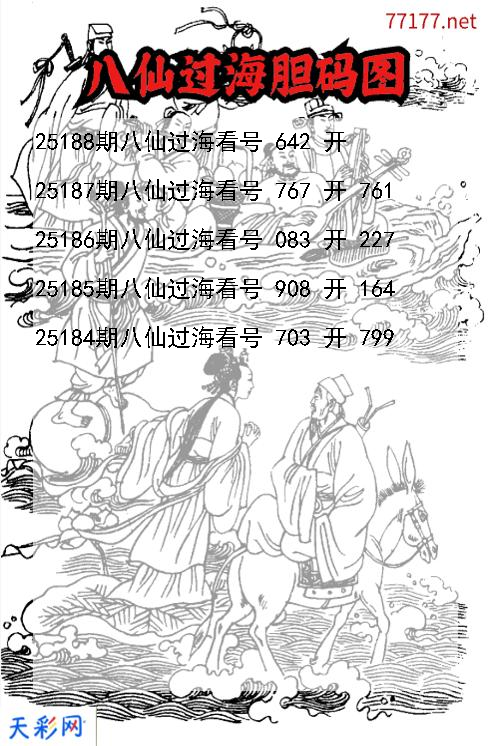 77177.net
八仙过海胆码图
25188期八仙过海看号 642 开
25187期八仙过海看号 767 开 761
25186期八仙过海看号 083 开 227
25185期八仙过海看号 908 开 164
25184期八仙过海看号 703 开 799
天彩网